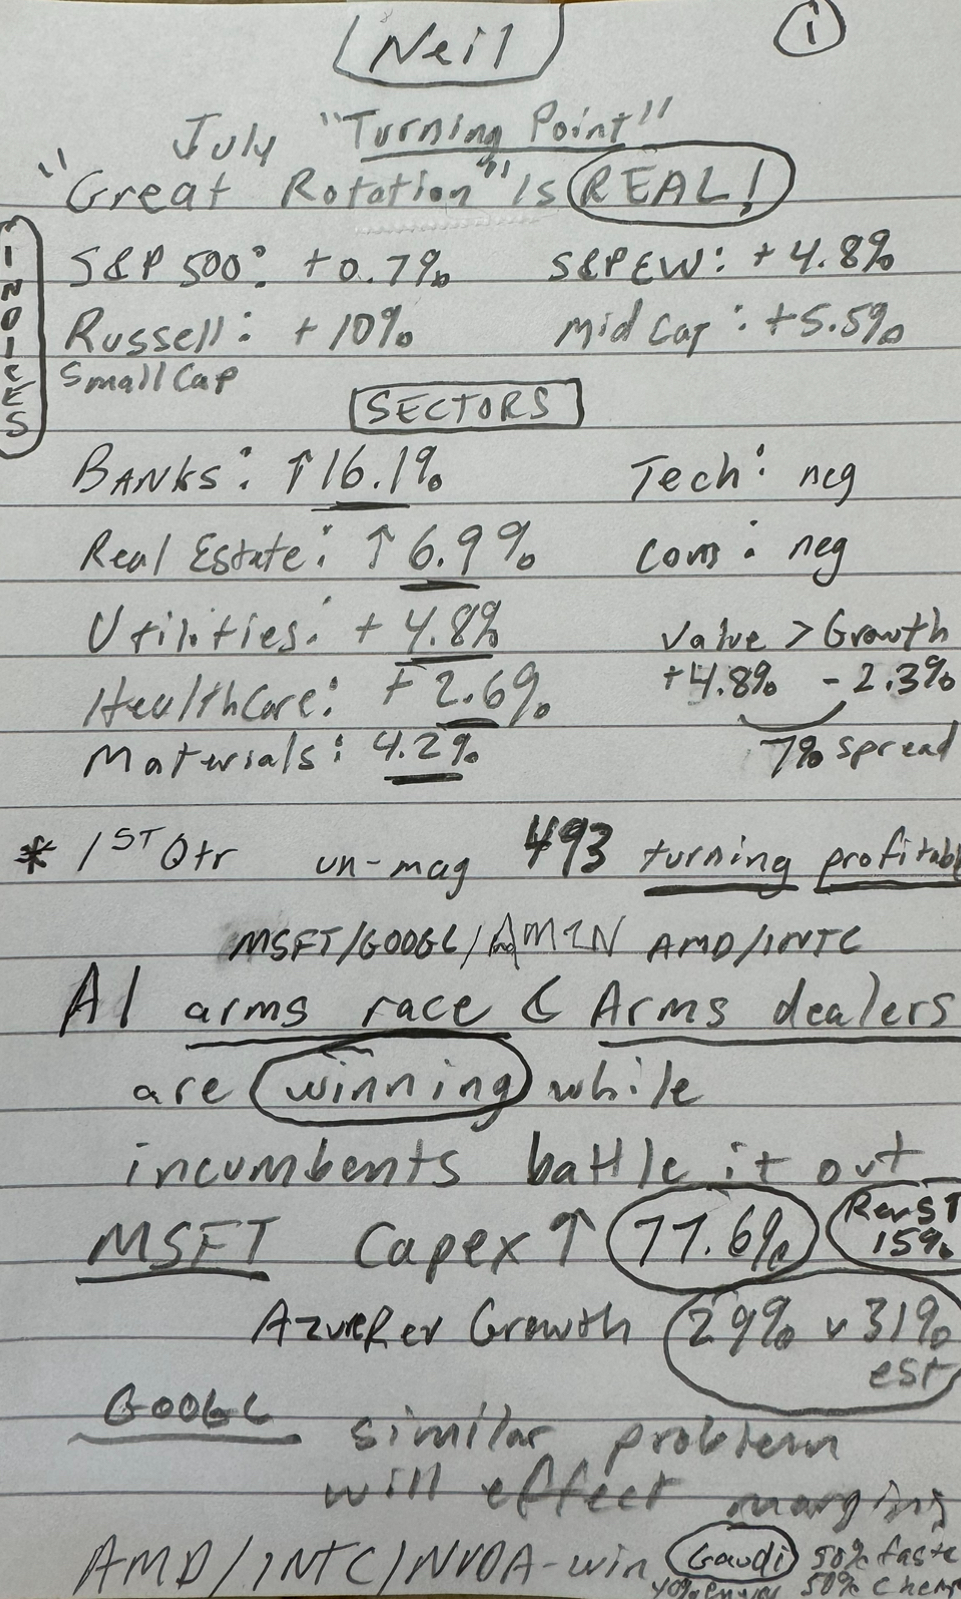 Neil
1
July "Turning Point"
"Great Rotation" is REAL!
INDICES
S&P 500: +0.7% S&P EW: +4.8%
Russell: +10% Mid Cap: +5.5%
Small Cap
SECTORS
BANKS: ↑16.1% Tech: neg
Real Estate: ↑6.9% Com: neg
Utilities: +4.8% Value > Growth
Healthcare: +2.6% +4.8% -2.3%
Materials: 4.2% 7% spread
* 1ST Qtr un-mag 493 turning profitabl
MSFT/GOOGL/AMZN AMD/INTC
AI arms race & Arms dealers
are winning while
incumbents battle it out
MSFT Capex ↑ 77.6% Revs ↑ 15%
Azure Rev Growth 29% v 31% est
GOOGL similar problem
will effect margins
AMD/INTC/NVDA-win Gaudi 50% faste
40% 50% cheap